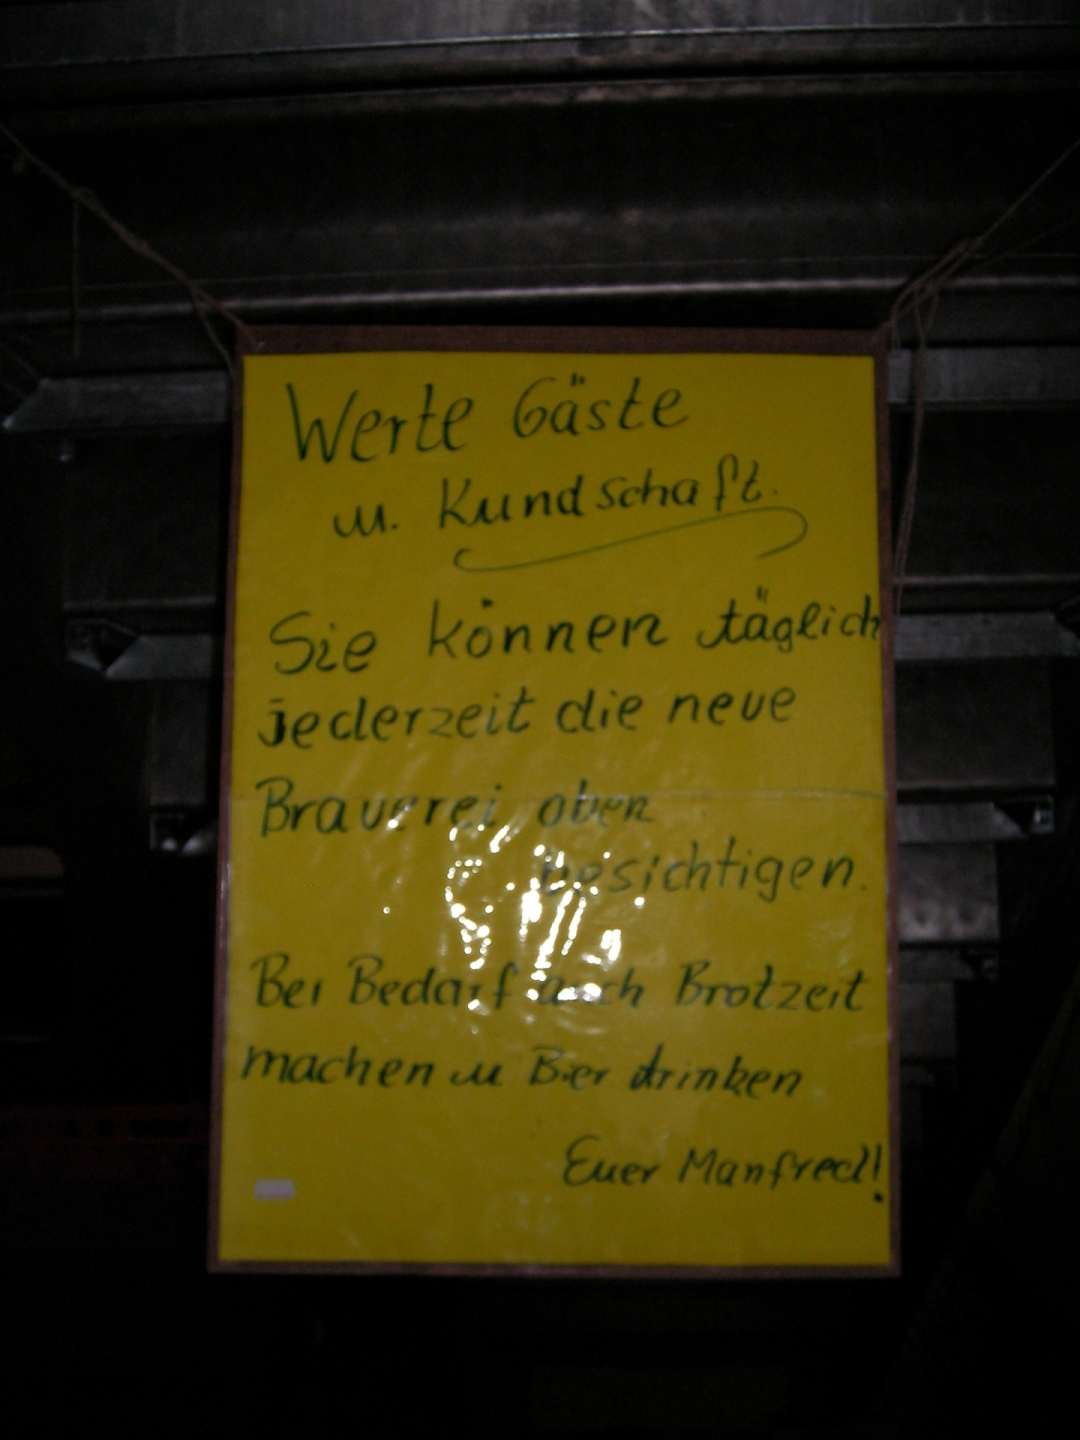 Werte Gäste
u. Kundschaft.
Sie können täglich
jederzeit die neue
Brauerei oben
besichtigen.
Bei Bedarf auch Brotzeit
machen u Bier drinken
Euer Manfred!